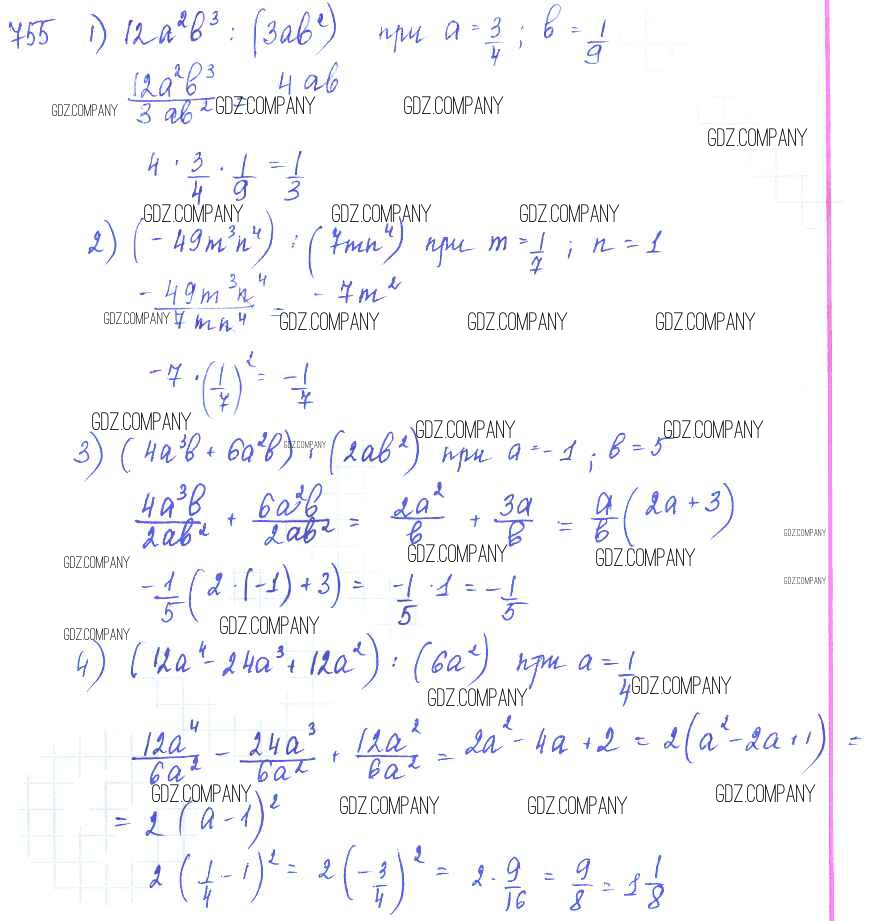 755 1) 12a²b³ : (3ab²) при a = 3/4 ; b = 1/9
12a²b³/3ab² = 4ab
GDZ.COMPANY GDZ.COMPANY GDZ.COMPANY
GDZ.COMPANY
4 · 3/4 · 1/9 = 1/3
GDZ.COMPANY GDZ.COMPANY GDZ.COMPANY
2) (-49m³n⁴) : (7mn⁴) при m = 1/7 ; n = 1
-49m³n⁴/7mn⁴ = -7m²
GDZ.COMPANY GDZ.COMPANY GDZ.COMPANY GDZ.COMPANY
-7 · (1/7)² = -1/7
GDZ.COMPANY GDZ.COMPANY GDZ.COMPANY
3) (4a³b + 6a²b) : (2ab²) при a = -1 ; b = 5
GDZ.COMPANY
4a³b/2ab² + 6a²b/2ab² = 2a²/b + 3a/b = a/b (2a + 3)
GDZ.COMPANY
GDZ.COMPANY GDZ.COMPANY GDZ.COMPANY
-1/5 (2 · (-1) + 3) = -1/5 · 1 = -1/5
GDZ.COMPANY
GDZ.COMPANY GDZ.COMPANY
4) (12a⁴ - 24a³ + 12a²) : (6a²) при a = 1/4
GDZ.COMPANY GDZ.COMPANY
12a⁴/6a² - 24a³/6a² + 12a²/6a² = 2a² - 4a + 2 = 2(a² - 2a + 1) =
GDZ.COMPANY GDZ.COMPANY GDZ.COMPANY GDZ.COMPANY
= 2 (a - 1)²
2 (1/4 - 1)² = 2 (-3/4)² = 2 · 9/16 = 9/8 = 1 1/8